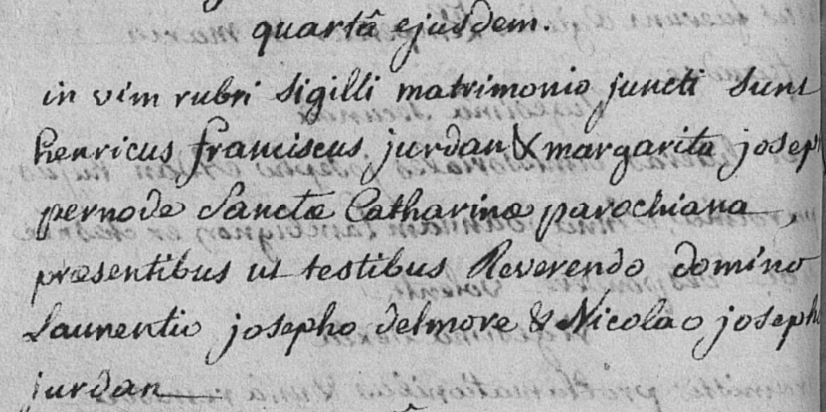 quartâ ejusdem.
in vim rubri Sigilli matrimonio juncti Sunt
henricus franciscus jurdan & margarita joseph
pernode Sanctæ Catharinæ parochiana,
præsentibus ut testibus Reverendo domino
Laurentio josepho delmore & Nicolao joseph
jurdan